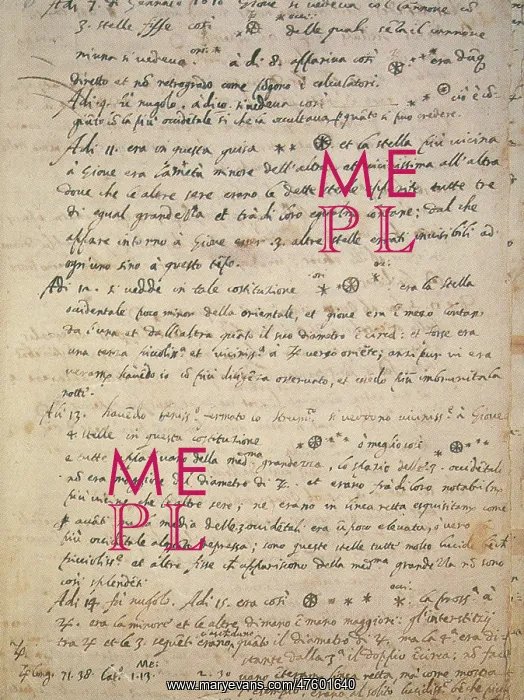 Adi 7. di Gennaio 1610 Giove si vedeva col cannone cō
3. stelle fisse così delle quali senza il cannone
ori.
niuna si vedeva à dì 8. appariva così era dūq
diretto et nō retrogrado come pōgono i calculatori.
Adì 9. fù nugolo. à dì 10. si vedeva così ciò è cō-
giūto cō la più occidētale sì che la occultava p quāto si può credere.
Adì 11. era in questa guisa et la stella più vicina
à Giove era la metà minore dell'altra et vicinissima all'altra
dove che le altre sere erano le dette stelle apparite tutte tre
di egual grandezza et trà di loro egualmēte lontane; dal che
appare intorno à Giove esser 3. altre stelle erranti invisibili ad
ogn'uno sino à questo tēpo.
Adì 12. si vedde in tale costituzione era la stella
occidentale poco minor della orientale, et giove era ī mezo lontano
da l'una et dall'altra quāto il suo diametro ī circa: et forse era
una terza piccolis.ª et vicinis.ª à ♃ verso oriēte; anzi pur vi era
veramēte havēdo io cō più diligēza osservato, et essēdo più imbrunita la
notte.
Adì 13. havēdo beniss.º fermato lo strum.º si veddono viciniss.e à Giove
4. stelle in questa costituzione ò meglio così
e tutte della med.ma grandezza, lo spazio delle 3. occidētali
nō era maggiore del diametro di ♃. et erano frà di loro notabilm.
più vicine che le altre sere; ne erano in linea retta esquisitam. come
media delle 3 occidētali era ū poco elevata, ò vero
più occidētale alquāto depressa; sono queste stelle tutte molto lucide bēch
piccoliss.e et altre fisse che appariscono della med.ma grandezza nō sono
così splendēti.
Adì 14. fù nugolo. Adì 15. era così la pross.ª à
♃. era la minore et le altre di mano ī mano maggiori: gl'interstizij
tra ♃ et le 3. seguēti erano, quāto il diametro di ♃. ma la 4.ª era di-
stante dalla 3.ª il doppio ī circa; nō face
♃ long. 71.38 lat.º 1.13.
ME
PL
ME
PL
www.maryevans.com/47601640